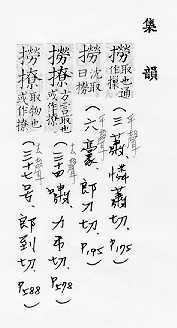 集韻
撈取也通作撩（三蕭、憐蕭切、P.175）平聲
撈沈取曰撈（六豪、郎刀切、P.195）平聲
撈撩方言取也或作撩（三十四嘯、力弔切、P.578）去聲
撈撩取物也或作撩（三十七号、郎到切、P.588）去聲